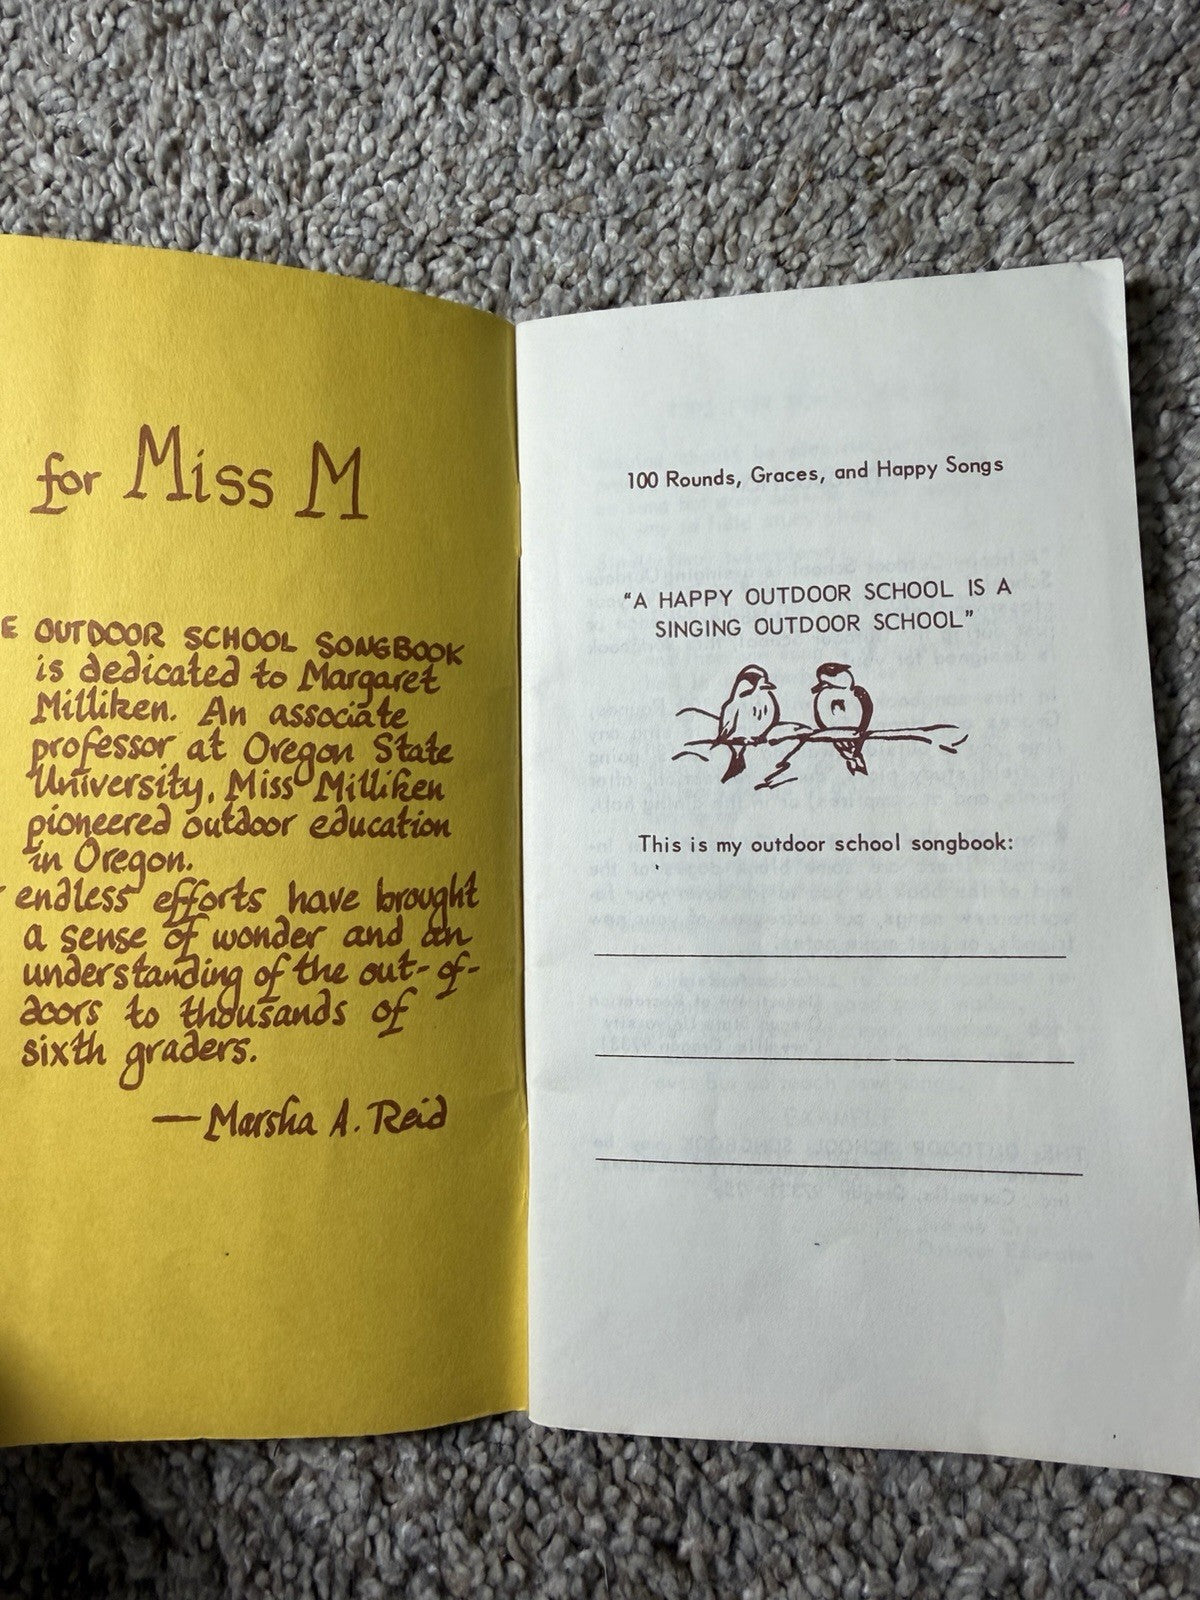 for Miss M
E OUTDOOR SCHOOL SONGBOOK
is dedicated to Margaret
Milliken. An associate
professor at Oregon State
University, Miss Milliken
pioneered outdoor education
in Oregon.
endless efforts have brought
a sense of wonder and an
understanding of the out-of-
doors to thousands of
sixth graders.
—Marsha A. Reid
100 Rounds, Graces, and Happy Songs
"A HAPPY OUTDOOR SCHOOL IS A
SINGING OUTDOOR SCHOOL"
This is my outdoor school songbook: